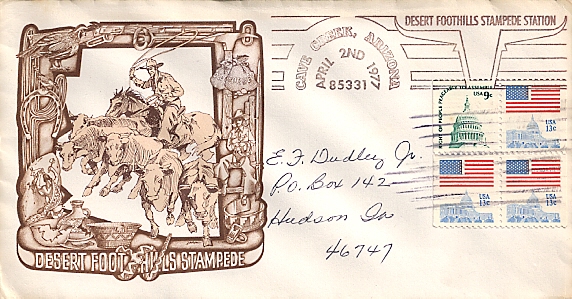 DESERT FOOTHILLS STAMPEDE STATION
CAVE CREEK, ARIZONA
APRIL 2ND 1977
85331
USA 9c
RIGHT OF PEOPLE PEACEABLY TO ASSEMBLE
USA
13c
USA
13c
USA
13c
E.F. Dudley Jr.
P.O. Box 142
Hudson In
46747
DESERT FOOT HILLS STAMPEDE